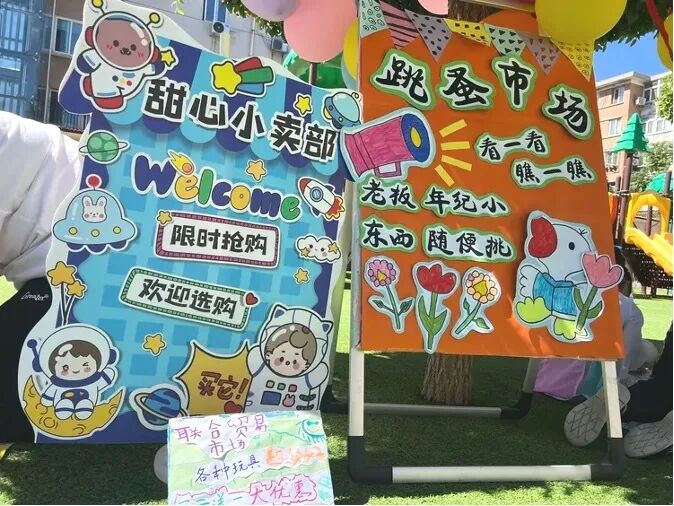 甜心小卖部
Welcome
限时抢购
欢迎选购
买它!
跳蚤市场
看一看
瞧一瞧
老板年纪小
东西随便挑
联合贸易
市场
各种玩具
大优惠